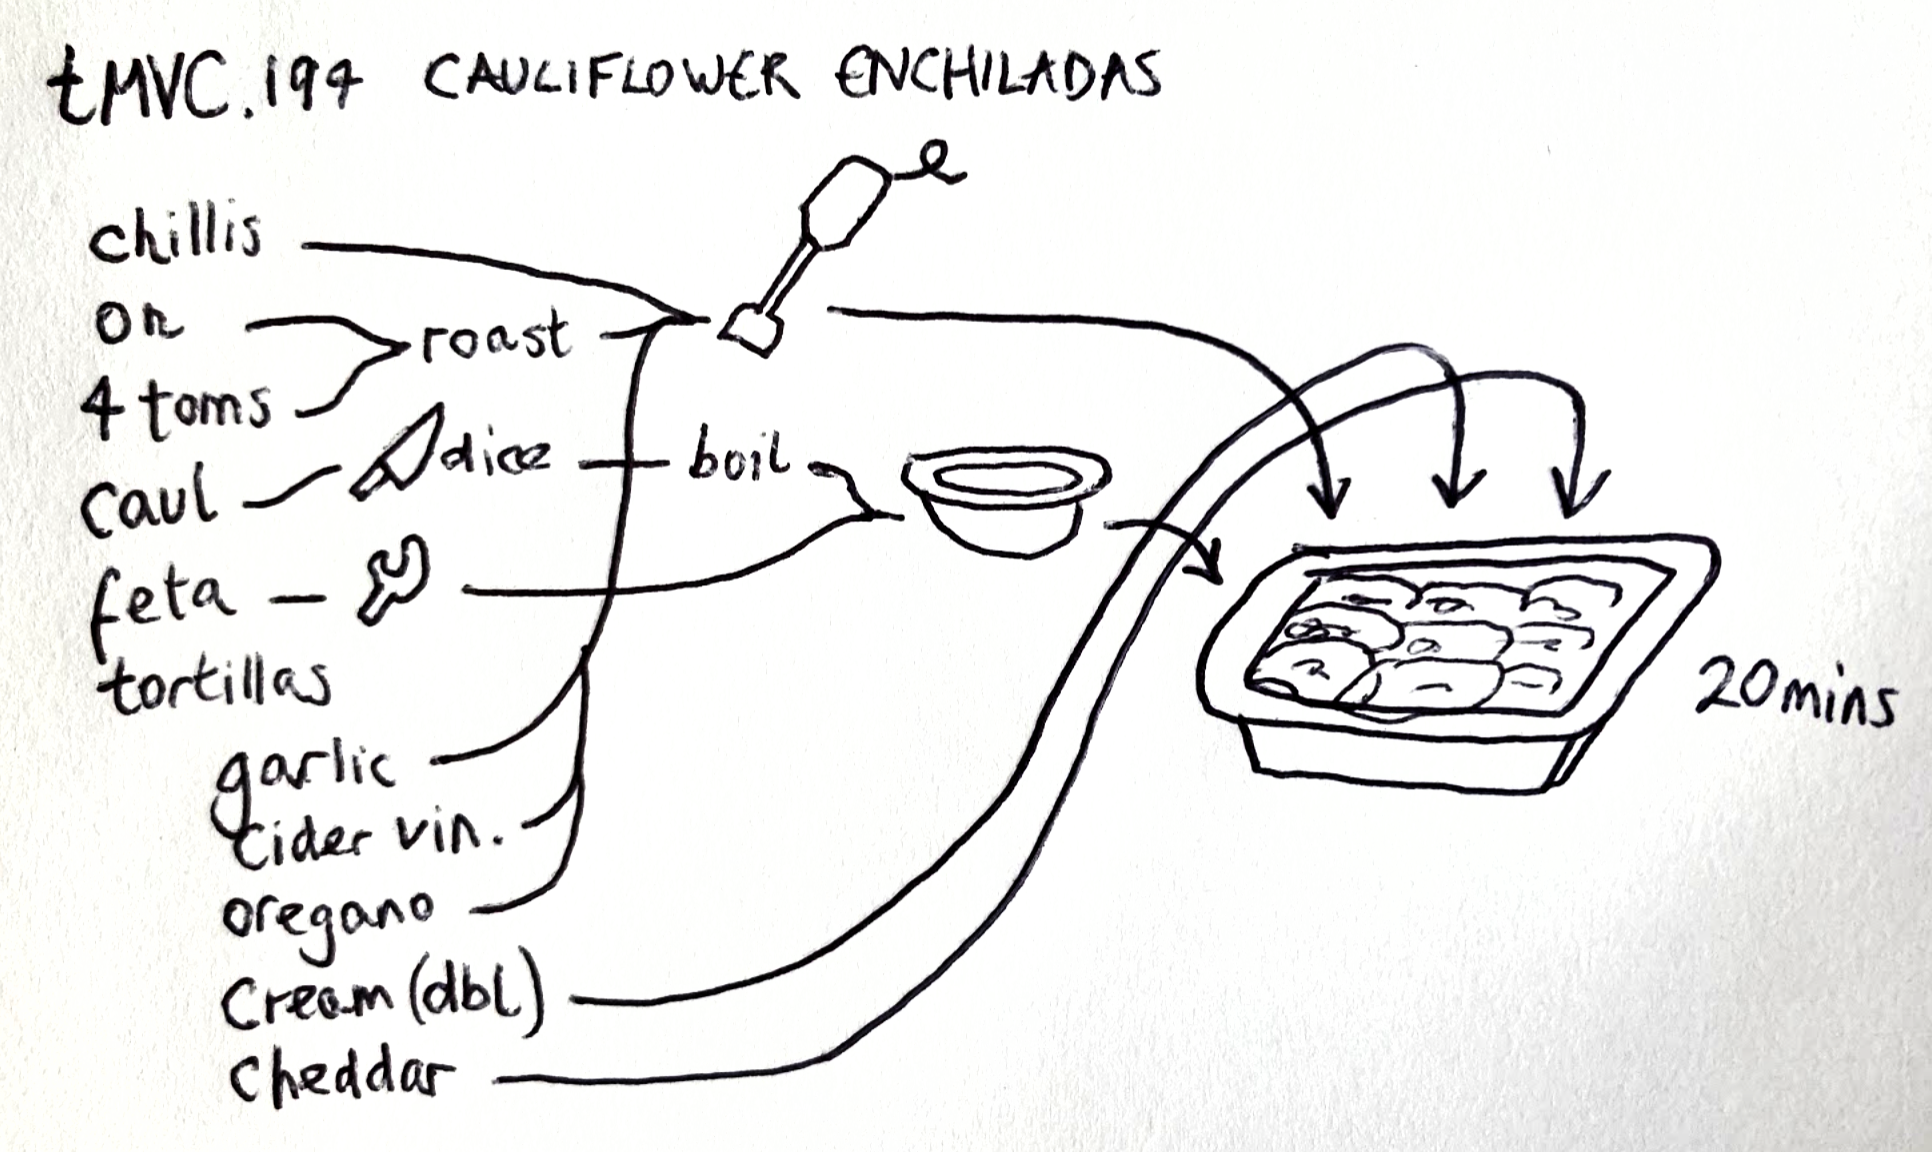 tMVC.194 CAULIFLOWER ENCHILADAS
chillis
on
roast
4 toms
caul dice boil
feta
tortillas
20mins
garlic
cider vin.
oregano
Cream (dbl)
Cheddar